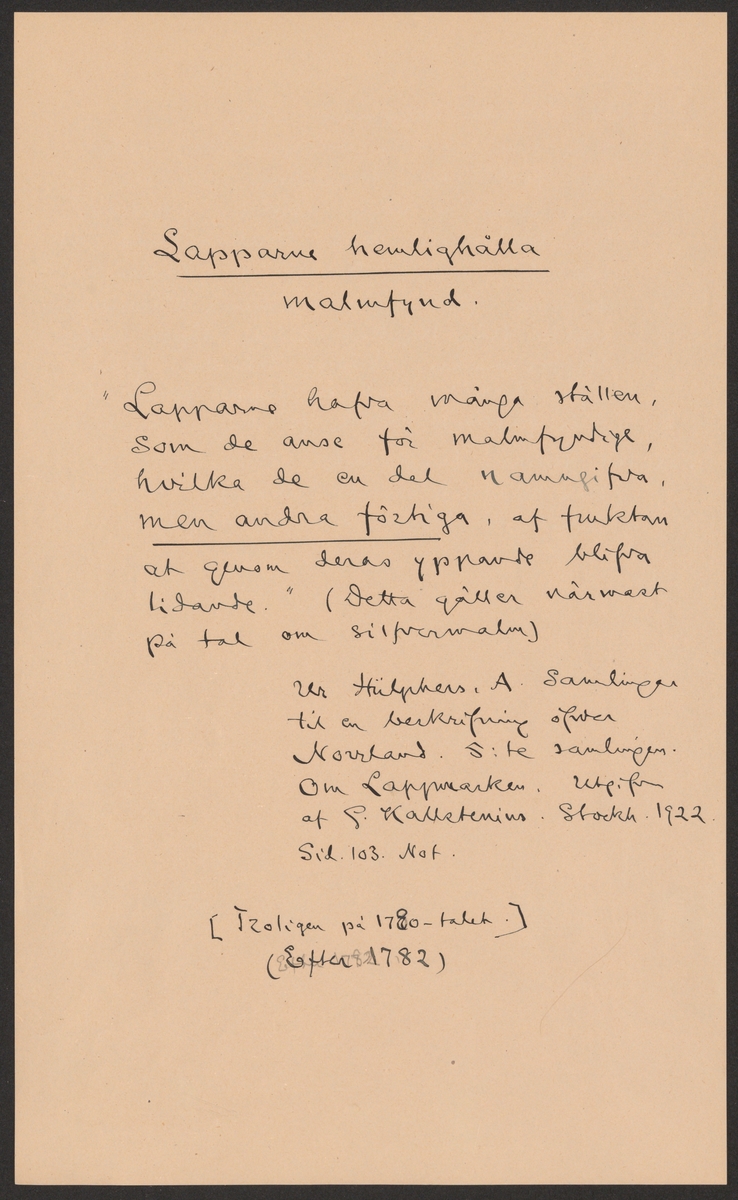 Lapparne hemlighålla
malmfynd.
"Lapparne hafva många ställen,
som de anse för malmfyndige,
hvilka de en del namngifva,
men andra förtiga, af fruktan
at genom deras yppande blifva
lidande." (Detta gäller närmast
på tal om silfvermalm)
Ur Hülphers, A. Samlingar
til en beskrifning öfver
Norrland. 5:te samlingen.
Om Lappmarken. Utgifven
af G. Kallstenius. Stockh. 1922.
Sid. 103. Not.
[Troligen på 1780-talet.]
(Efter 1782)